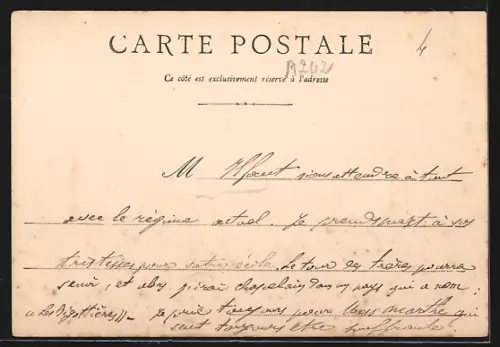 CARTE POSTALE
4
A242
Ce côté est exclusivement réservé à l'adresse
M Il faut s'attendre à tout
avec le régime actuel. Je prends part à vos
tristesses pour votre école. Le tour des frères pourra
venir, et alors j'irai chapelain dans un pays qui a nom :
« Les ». Je prie toujours pour Marthe qui
toujours être souffrante.